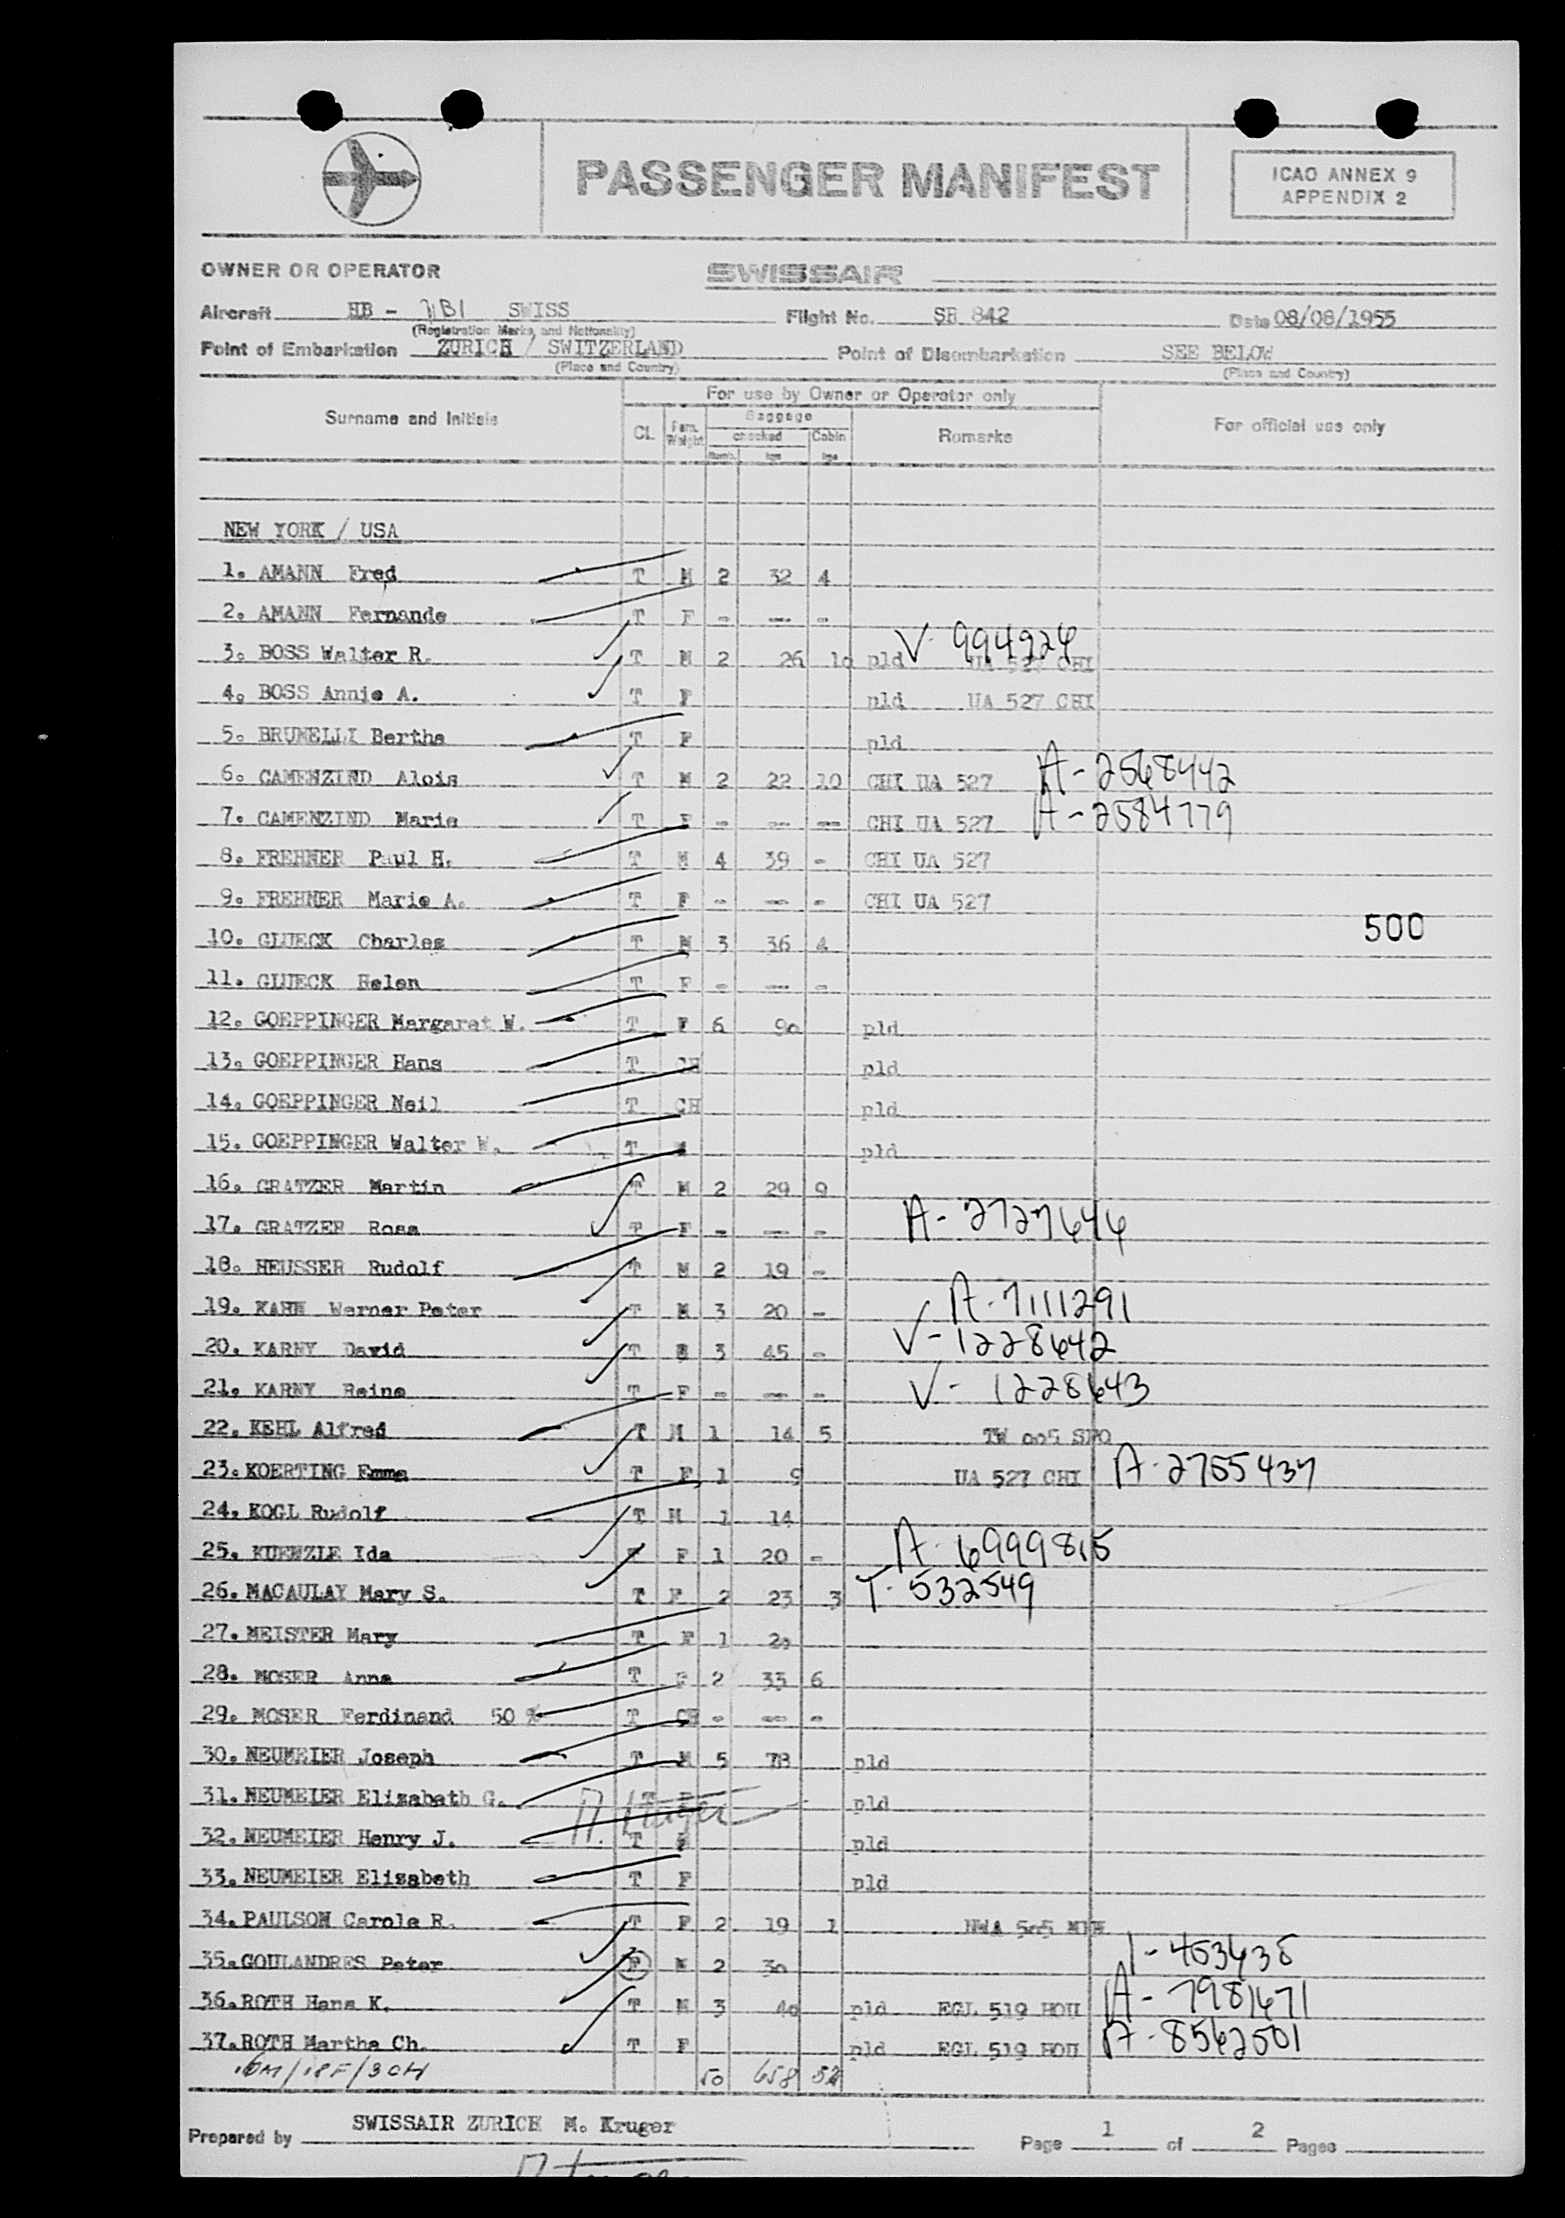 PASSENGER MANIFEST
ICAO ANNEX 9
APPENDIX 2
OWNER OR OPERATOR SWISSAIR
Aircraft HB - SWISS Flight No. SR 842 Date 08/08/1955
(Registration Marks, and Nationality)
Point of Embarkation ZURICH / SWITZERLAND Point of Disembarkation SEE BELOW
(Place and Country) (Place and Country)
For use by Owner or Operator only
Surname and Initials CL Pers. Weight Baggage checked Numb. kgs Cabin kgs Remarks For official use only
NEW YORK / USA
1. AMANN Fred T M 2 32 4
2. AMANN Fernande T F - -- -
3. BOSS Walter R. T M 2 26 10 pld V- 994924 UA 527 CHI
4. BOSS Annie A. T F pld UA 527 CHI
5. BRUNELLI Bertha T F pld
6. CAMENZIND Alois T M 2 22 10 CHI UA 527 A-2568442
7. CAMENZIND Marie T F - -- -- CHI UA 527 A-2584779
8. FREHNER Paul H. T M 4 39 - CHI UA 527
9. FREHNER Marie A. T F - -- - CHI UA 527
500
10. GLUECK Charles T M 3 36 4
11. GLUECK Helen T F - -- -
12. GOEPPINGER Margaret W. T F 6 90 pld
13. GOEPPINGER Hans T CH pld
14. GOEPPINGER Neil T CH pld
15. GOEPPINGER Walter W. T M pld
16. GRATZER Martin T M 2 29 9
17. GRATZER Rosa T F - -- - A-2727646
18. HEUSSER Rudolf T M 2 19 -
19. KAHN Werner Peter T M 3 20 - A-7111291
20. KARNY David T M 3 45 - V-1228642
21. KARNY Reine T F - -- - V- 1228643
22. KEHL Alfred T M 1 14 5 TW 005 SFO
23. KOERTING Emma T F 1 9 UA 527 CHI A-2755437
24. KOGL Rudolf T M 1 14
25. KUENZLE Ida T F 1 20 - A-6999815
26. MACAULAY Mary S. T F 2 23 3 T-532549
27. MEISTER Mary T F 1 20
28. MOSER Anna T F 2 33 6
29. MOSER Ferdinand 50 % T CH - -- -
30. NEUMEIER Joseph T M 5 78 pld
31. NEUMEIER Elisabeth G. T F pld
32. NEUMEIER Henry J. T M pld
33. NEUMEIER Elisabeth T F pld
34. PAULSON Carole R. T F 2 19 1 NWA 505
35. GOULANDRES Peter F M 2 30 1-453438
36. ROTH Hans K. T M 3 40 pld EGL 519 HOU A-7981671
37. ROTH Martha Ch. T F pld EGL 519 HOU A-8562501
16M/18F/3CH 50 658 52
Prepared by SWISSAIR ZURICH M. Kruger Page 1 of 2 Pages